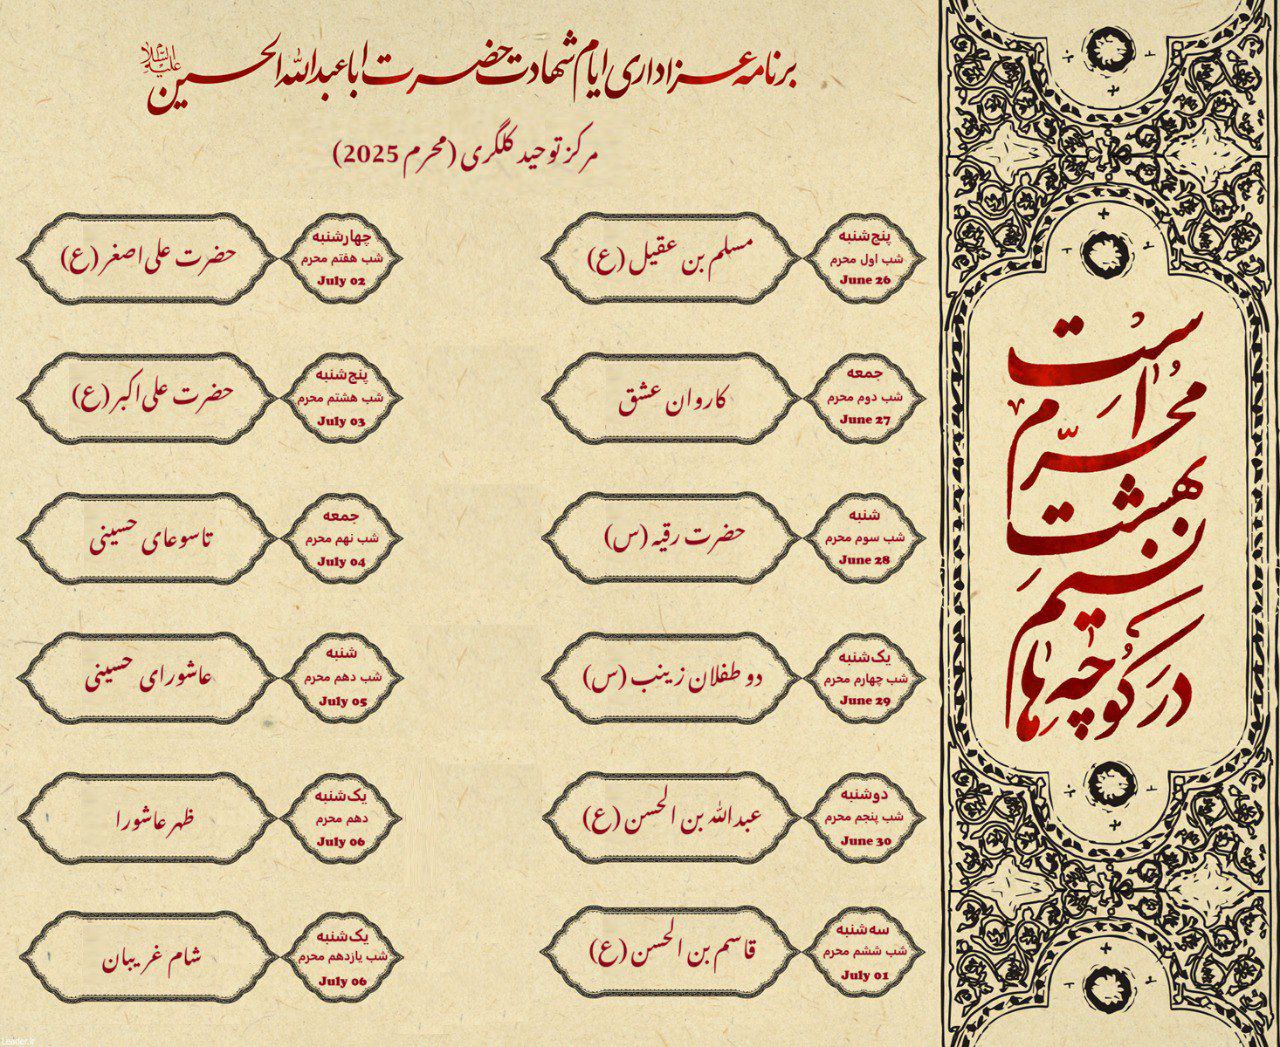 برنامه عزاداری ایام شهادت حضرت اباعبدالله الحسین علیه السلام
مرکز توحید کلگری (محرم 2025)
پنج‌شنبه
شب اول محرم
June 26
مسلم بن عقیل (ع)
جمعه
شب دوم محرم
June 27
کاروان عشق
شنبه
شب سوم محرم
June 28
حضرت رقیه (س)
یک‌شنبه
شب چهارم محرم
June 29
دو طفلان زینب (س)
دوشنبه
شب پنجم محرم
June 30
عبدالله بن الحسن (ع)
سه‌شنبه
شب ششم محرم
July 01
قاسم بن الحسن (ع)
چهارشنبه
شب هفتم محرم
July 02
حضرت علی اصغر (ع)
پنج‌شنبه
شب هشتم محرم
July 03
حضرت علی اکبر (ع)
جمعه
شب نهم محرم
July 04
تاسوعای حسینی
شنبه
شب دهم محرم
July 05
عاشورای حسینی
یک‌شنبه
دهم محرم
July 06
ظهر عاشورا
یک‌شنبه
شب یازدهم محرم
July 06
شام غریبان
در کوچه‌ها
نسیم
بهشت
محرّم
است
Leader.ir